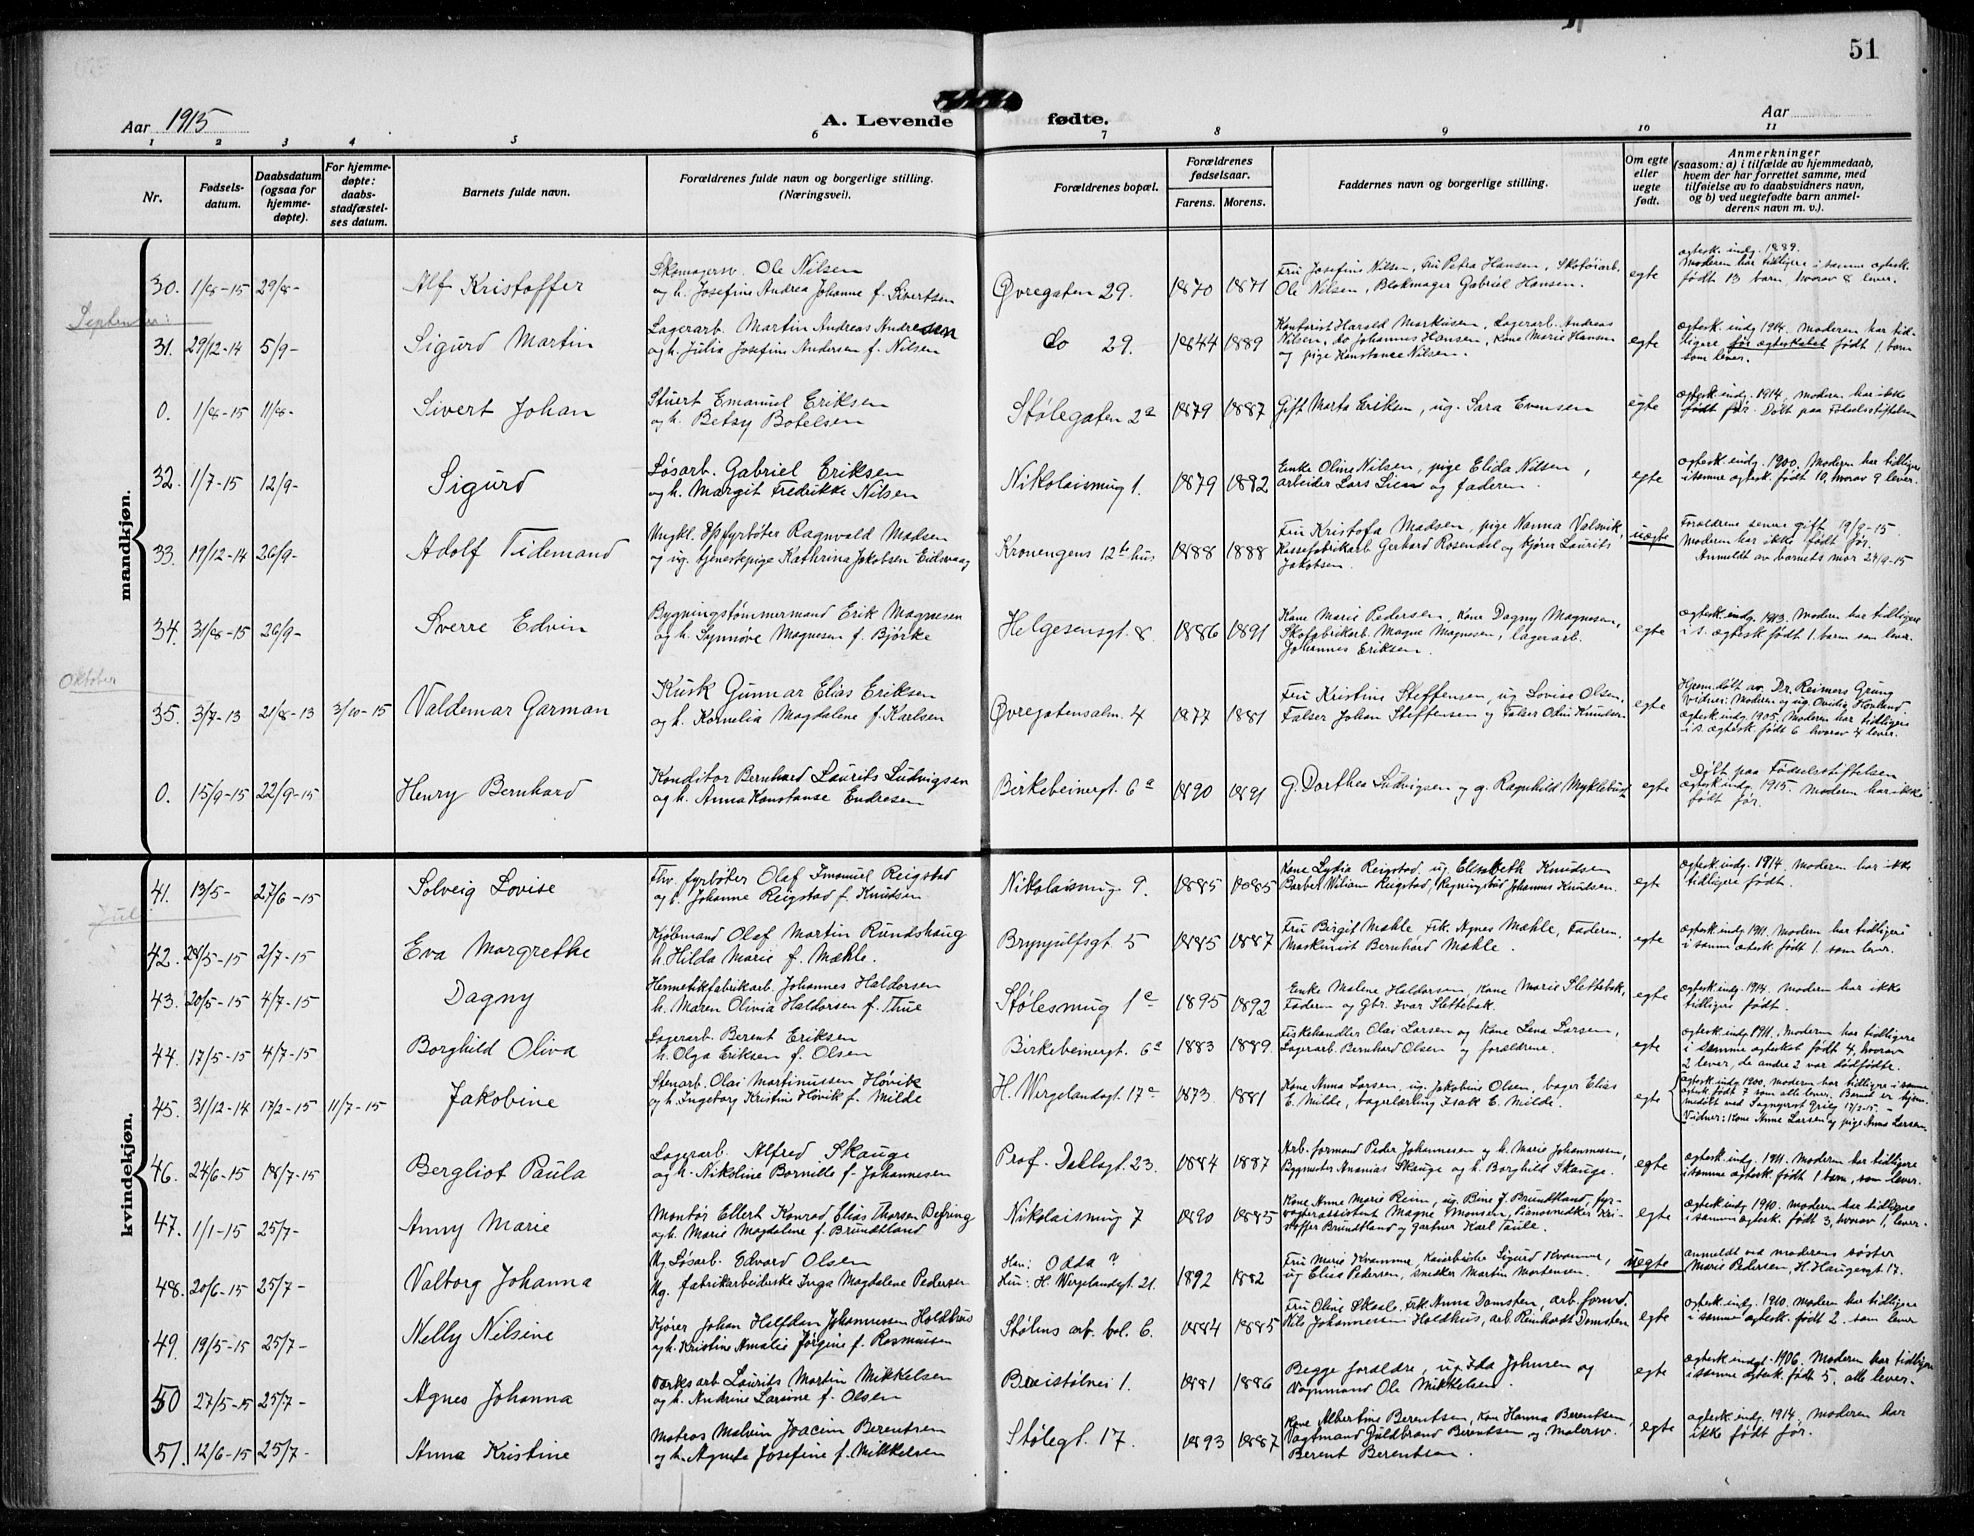 51
Aar 1915
A. Levende fødte.
Aar
1 2 3 4 5 6 7 8 9 10 11
Nr.
Fødsels-
datum.
Daabsdatum
(ogsaa for
hjemme-
døpte).
For hjemme-
døpte:
daabs-
stadfæstel-
ses datum.
Barnets fulde navn.
Forældrenes fulde navn og borgerlige stilling.
(Næringsvei).
Forældrenes bopæl.
Forældrenes
fødselsaar.
Farens. Morens.
Faddernes navn og borgerlige stilling.
Om egte
eller
uegte
født.
Anmerkninger
(saasom: a) i tilfælde av hjemmedaab,
hvem der har forrettet samme, med
tilføielse av to daabsvidners navn,
og b) ved uegtefødte barn anmel-
derens navn m. v.).
mandkjøn.
30. 1/8-15 29/8- Alf Kristoffer
Skomagersv. Ole Nilsen
og h. Josefine Andrea Johanne f. Sivertsen
Øvregaten 29. 1870 1871
Fru Josefine Nilsen, Fru Petra Hansen, Skotøiarb.
Ole Nilsen, Blokmager Gabriel Hansen.
egte
egtesk. indg. 1889.
Moderen har tidligere i samme egtesk.
født 13 barn, hvorav 8 lever.
September:
31. 29/12-14 5/9- Sigurd Martin
Lagerarb. Martin Andreas Andresen
og h. Julia Josefine Andersen f. Nilsen
do 29. 1844 1889
Kontorist Harald Markusen, Lagerarb. Andreas
Nilsen, do Johannes Hansen, Kone Marie Hansen
og pige Konstanse Nilsen.
egte
egtesk. indg. 1914. Moderen har tid-
ligere før egteskabet født 1 barn
som lever.
0. 1/8-15 11/8- Sivert Johan
Stuert Emanuel Eriksen
og h. Betsy Botelsen
Stølegaten 2a 1879 1887
Gift Marta Eriksen, ug. Sara Evensen
egte
egtesk. indg. 1914, moderen har ikke
født før. Døbt paa Fødselsstiftelsen
32. 1/7-15 12/9- Sigurd
Løsarb. Gabriel Eriksen
og h. Margit Fredrikke Nilsen
Nikolaismug 1. 1879 1882
Enke Oline Nilsen, pige Elida Nilsen,
arbeider Lars Lien og faderen.
egte
egtesk. indg. 1900. Moderen har tidligere
i samme egtesk. født 10, hvorav 9 lever.
33. 19/12-14 26/9- Adolf Tidemand
Ungkl. Dpfyrbøter Ragnvald Madsen
og ug. tjenestepige Kathrina Jakobsen Eidsvaag
Kronengens 12te hus 1888 1888
Fru Kristofa Madsen, pige Nanna Valsvik,
Kassefabrikarb Gerhard Rosendal og kjører Laurits
Jakobsen.
uegte
Forældrene senere gift 19/9-15
Moderen har ikke født før.
Anmeldt av barnets mor 24/9-15
34. 31/8-15 26/9- Sverre Edvin
Bygningstømmermand Erik Magnesen
og h. Synnøve Magnesen f. Bjørke
Helgesensgt. 8. 1886 1891
Kone Marie Pedersen, Kone Dagny Magnesen,
Skofabrikarb. Magne Magnesen, lagerarb.
Johannes Eriksen.
egte
egtesk. indg. 1913. Moderen har tidligere
i s. egtesk. født 1. barn som lever.
Oktober
35. 3/7-13 21/8-13 3/10-15 Valdemar Garman
Kusk Gunnar Elias Eriksen
og h. Kornelia Magdalene f. Karlsen
Øvregatensalm. 4 1877 1881
Fru Kristine Steffensen, ug Lovise Olsen,
Falser Johan Steffensen og Falser Odin Knudsen.
egte
Hjem.døbt av Dr. Reimers Grung
Vidner: Moderen og ug. Ovidia Hovland
egtesk. indg. 1905. Moderen har tidligere
i s. egtesk. født 6 hvorav 4 lever.
0. 15/9-15 22/9-15 Henry Bernhard
Konditor Bernhard Laurits Ludvigsen
og h. Anna Konstanse Endresen
Birkebeinergt 6a 1890 1891
G. Dorthea Ludvigsen og g. Ragnhild Myklebust
egte
Døbt paa Fødselsstiftelsen
egtesk. indg. 1915. Moderen har ikke
født før.
kvindekjøn.
41. 13/5- 27/6-15 Solveig Lovise
Fhv. fyrbøter Olaf Imanuel Reigstad
og h. Johanne Reigstad f. Knudsen
Nikolaismug 9. 1885 1885
Kone Lydia Reigstad, ug. Elisabeth Knudsen
Barber Viliam Reigstad, Regningsbud Johannes Knudsen.
egte
egtesk. indg. 1914. Moderen har ikke
tidligere født.
Juli
42. 28/5-15 2/7-15 Eva Margrethe
Kjøbmand Olaf Martin Rundshaug
h. Hilda Marie f. Mæhle.
Brynjulfsgt 5 1885 1887
Fru Birgit Mæhle, Frk. Agnes Mæhle, Faderen,
Maskinist Bernhard Mæhle.
egte
egtesk. indg. 1911. Moderen har tidligere
i samme egtesk. født 1. som lever.
43. 20/5-15 4/7-15 Dagny
Hermetikfabrikarb. Johannes Haldorsen
h. Maren Olivia Haldorsen f. Thue
Stølesmug 1c 1895 1892
Enke Malene Haldorsen, Kone Marie Slettebak,
Faderen og Gbr. Ivar Slettebak.
egte
egtesk. indg. 1914. Moderen har ikke
tidligere født.
44. 17/5-15 4/7-15 Borghild Oliva
Lagerarb. Berent Eriksen
h. Olga Eriksen f. Olsen
Birkebeinergt. 6a 1883 1889.
Fiskehandler Olai Larsen og Kone Lena Larsen,
Lagerarb. Bernhard Olsen og forældrene.
egte
egtesk. indg. 1911. Moderen har tidligere
i samme egteskab født 4, hvorav
2 lever, de andre 2 var dødfødte.
45. 31/12-14 17/2-15 11/7-15 Jakobine
Stenarb. Olai Martinussen Høvik
og h. Ingeborg Kristine Høvik f. Milde
H. Wergelandsgt. 17c 1873 1881
Kone Anna Larsen, ug. Jakobine Olsen, bager Elias
E. Milde, bagerlærling Isak E. Milde.
egte
egtesk. indg. 1900. Moderen har tidligere i samme
egtesk. født 7 som alle lever. Barnet er hjem-
medøbt ved Sogneprest Grieg 17/2-15.
Vidner: Kone Anne Larsen og pige Anna Larsen.
46. 24/6-15 18/7-15 Bergliot Paula
Lagerarb. Alfred Skauge
og h. Nikoline Bornille f. Johannesen
Prof. Dahlsgt. 23. 1884 1887
Arb. formand Peder Johannessen og h. Marie Johannesen,
Bygmester Ananias Skauge og h. Borghild Skauge.
egte
egtesk. indg. 1911. Moderen har tidligere
i samme egtesk. født 1 barn, som lever.
47. 1/1-15 25/7- Anny Marie
Montør Ellert Konrad Elias Thorsen Befring
og h. Marie Magdalene f. Brundtland
Nikolaismug 7 1890 1885
Kone Anne Marie Reim, ug. Bine J. Brundtland, fyr-
vogterassistent Magne Simonsen, Pianosmedker Kri-
stoffer Brundtland og gartner Karl Taule.
egte
egtesk. indg. 1910. Moderen har tidligere
i samme egtesk. født 3, hvorav 1, lever.
48. 20/6-15 25/7- Valborg Johanna
Ug. Løsarb. Edvard Olsen
Ug. fabrikarbeiderske Inga Magdalene Pedersen
Han: Odda ?
Hun: H. Wergelandsgt. 21. 1892 1882
Fru Marie Kvamme, Kaiarbeider Sigurd Kvamme,
ug Elisa Pedersen, snedker Martin Mortensen.
uegte
anmeldt ved moderens søster
Marie Pedersen, H. Haugesgt 17.
49. 13/5-15 25/7- Nelly Nilsine
Kjører Johan Halfdan Johannessen Holdhus
og h. Kristine Amalie Jørgine f. Rasmussen
Stølens arb. bol. 6. 1884 1885
Fru Oline Skaale, Frk. Anna Domsten, arb. formd.
Nils Johannessen Holdhus, arb. Reinhardt Domsten
egte
egtesk. indg. 1910. Moderen har tidligere
i samme egtesk. født 2. som lever
50 27/5-15 25/7- Agnes Johanna
Verksarb Laurits Martin Mikkelsen
og h. Andrine Larsine f. Olsen
Breistølnei 1. 1881 1886
Begge forældre, ug. Ida Johnsen og
Vognmand Ole Mikkelsen.
egte
egtesk. indgt. 1906. Moderen har tidligere
i samme egtesk. født 5. alle lever.
51. 12/6-15 25/7- Anna Kristine
Matros Malvin Joacim Berentsen
og h. Agneta Josefine f. Mikkelsen
Stølegt. 17. 1893 1887
Kone Albertine Berentsen, Kone Hanna Berentsen,
Vagtmand Guldbrand Berentsen og Malersv.
Berent Berentsen.
egte
egtesk. indg. 1914, moderen har
ikke født før.